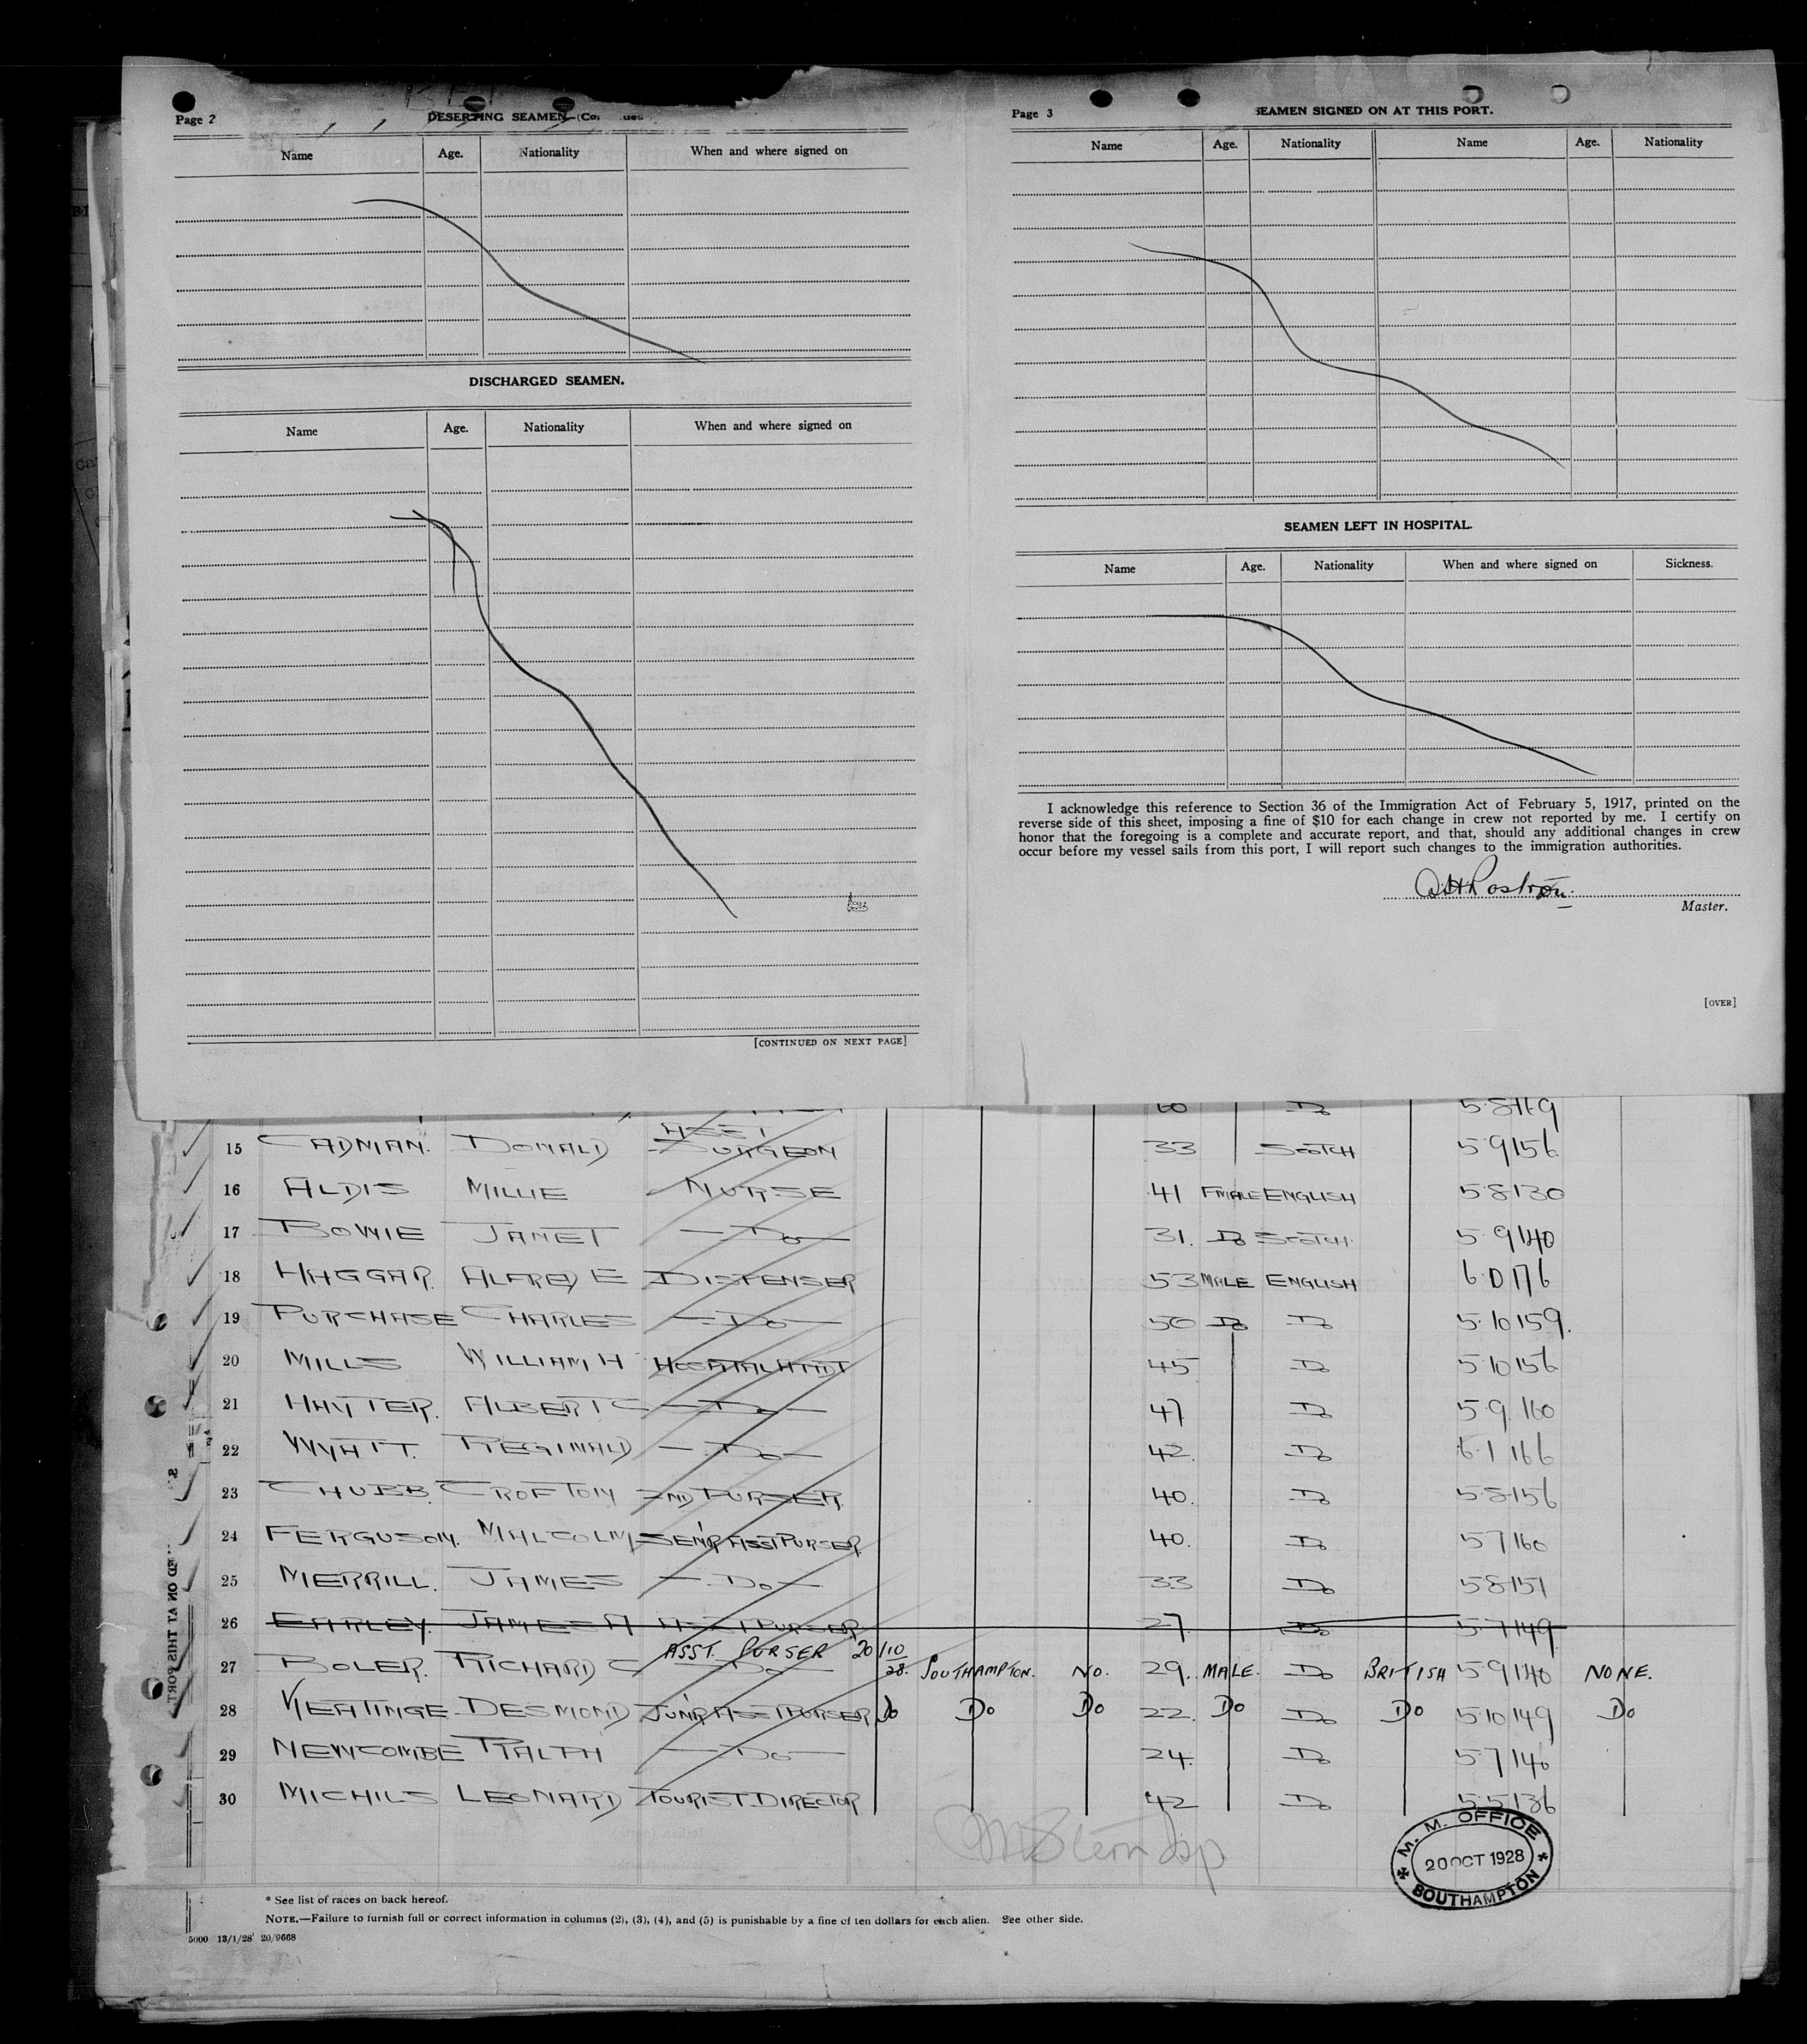 Page 2
DESERTING SEAMEN
Name Age. Nationality When and where signed on
DISCHARGED SEAMEN.
Name Age. Nationality When and where signed on
[CONTINUED ON NEXT PAGE]
Page 3
SEAMEN SIGNED ON AT THIS PORT.
Name Age. Nationality Name Age. Nationality
SEAMEN LEFT IN HOSPITAL.
Name Age. Nationality When and where signed on Sickness.
I acknowledge this reference to Section 36 of the Immigration Act of February 5, 1917, printed on the
reverse side of this sheet, imposing a fine of $10 for each change in crew not reported by me. I certify on
honor that the foregoing is a complete and accurate report, and that, should any additional changes in crew
occur before my vessel sails from this port, I will report such changes to the immigration authorities.
A H Rostron
Master.
[OVER]
15 CADMAN. DONALD ASST SURGEON 33 SCOTCH 5.9 156
16 ALDIS MILLIE NURSE 41 FMALE ENGLISH 5.8 130
17 BOWIE JANET Do 31. Do SCOTCH 5.9 140
18 HAGGAR. ALFRED E DISPENSER 53 MALE ENGLISH 6.0 176
19 PURCHASE CHARLES Do 50 Do Do 5.10 159.
20 MILLS WILLIAM H HOSPITAL ATTDT 45 Do 5.10 156
21 HAYTER. ALBERT C Do 47 Do 5.9. 160
22 WYATT. REGINALD Do 42. Do 6.1 166
23 CHUBB. CROFTON 2ND PURSER. 40. Do 5.8 156
24 FERGUSON. MALCOLM SENR ASST PURSER 40. Do 5.7 160
25 MERRILL. JAMES Do 33 Do 5.8 151
26 EARLEY. JAMES A ASST PURSER 27. Do 5.7 149
27 BOLER. RICHARD C ASST. PURSER Do 20/10 28. SOUTHAMPTON. NO. 29. MALE. Do BRITISH 5.9 140 NONE.
28 KEATINGE DESMOND JUNR ASST PURSER Do Do Do 22. Do Do Do 5.10 149 Do
29 NEWCOMBE RALPH Do 24. Do 5.7 146
30 MICHILS LEONARD TOURIST DIRECTOR 42 Do 5.5 136
M. M. OFFICE
20 OCT 1928
SOUTHAMPTON
* See list of races on back hereof.
NOTE.—Failure to furnish full or correct information in columns (2), (3), (4), and (5) is punishable by a fine of ten dollars for each alien. See other side.
5000 13/1/28 20/9668